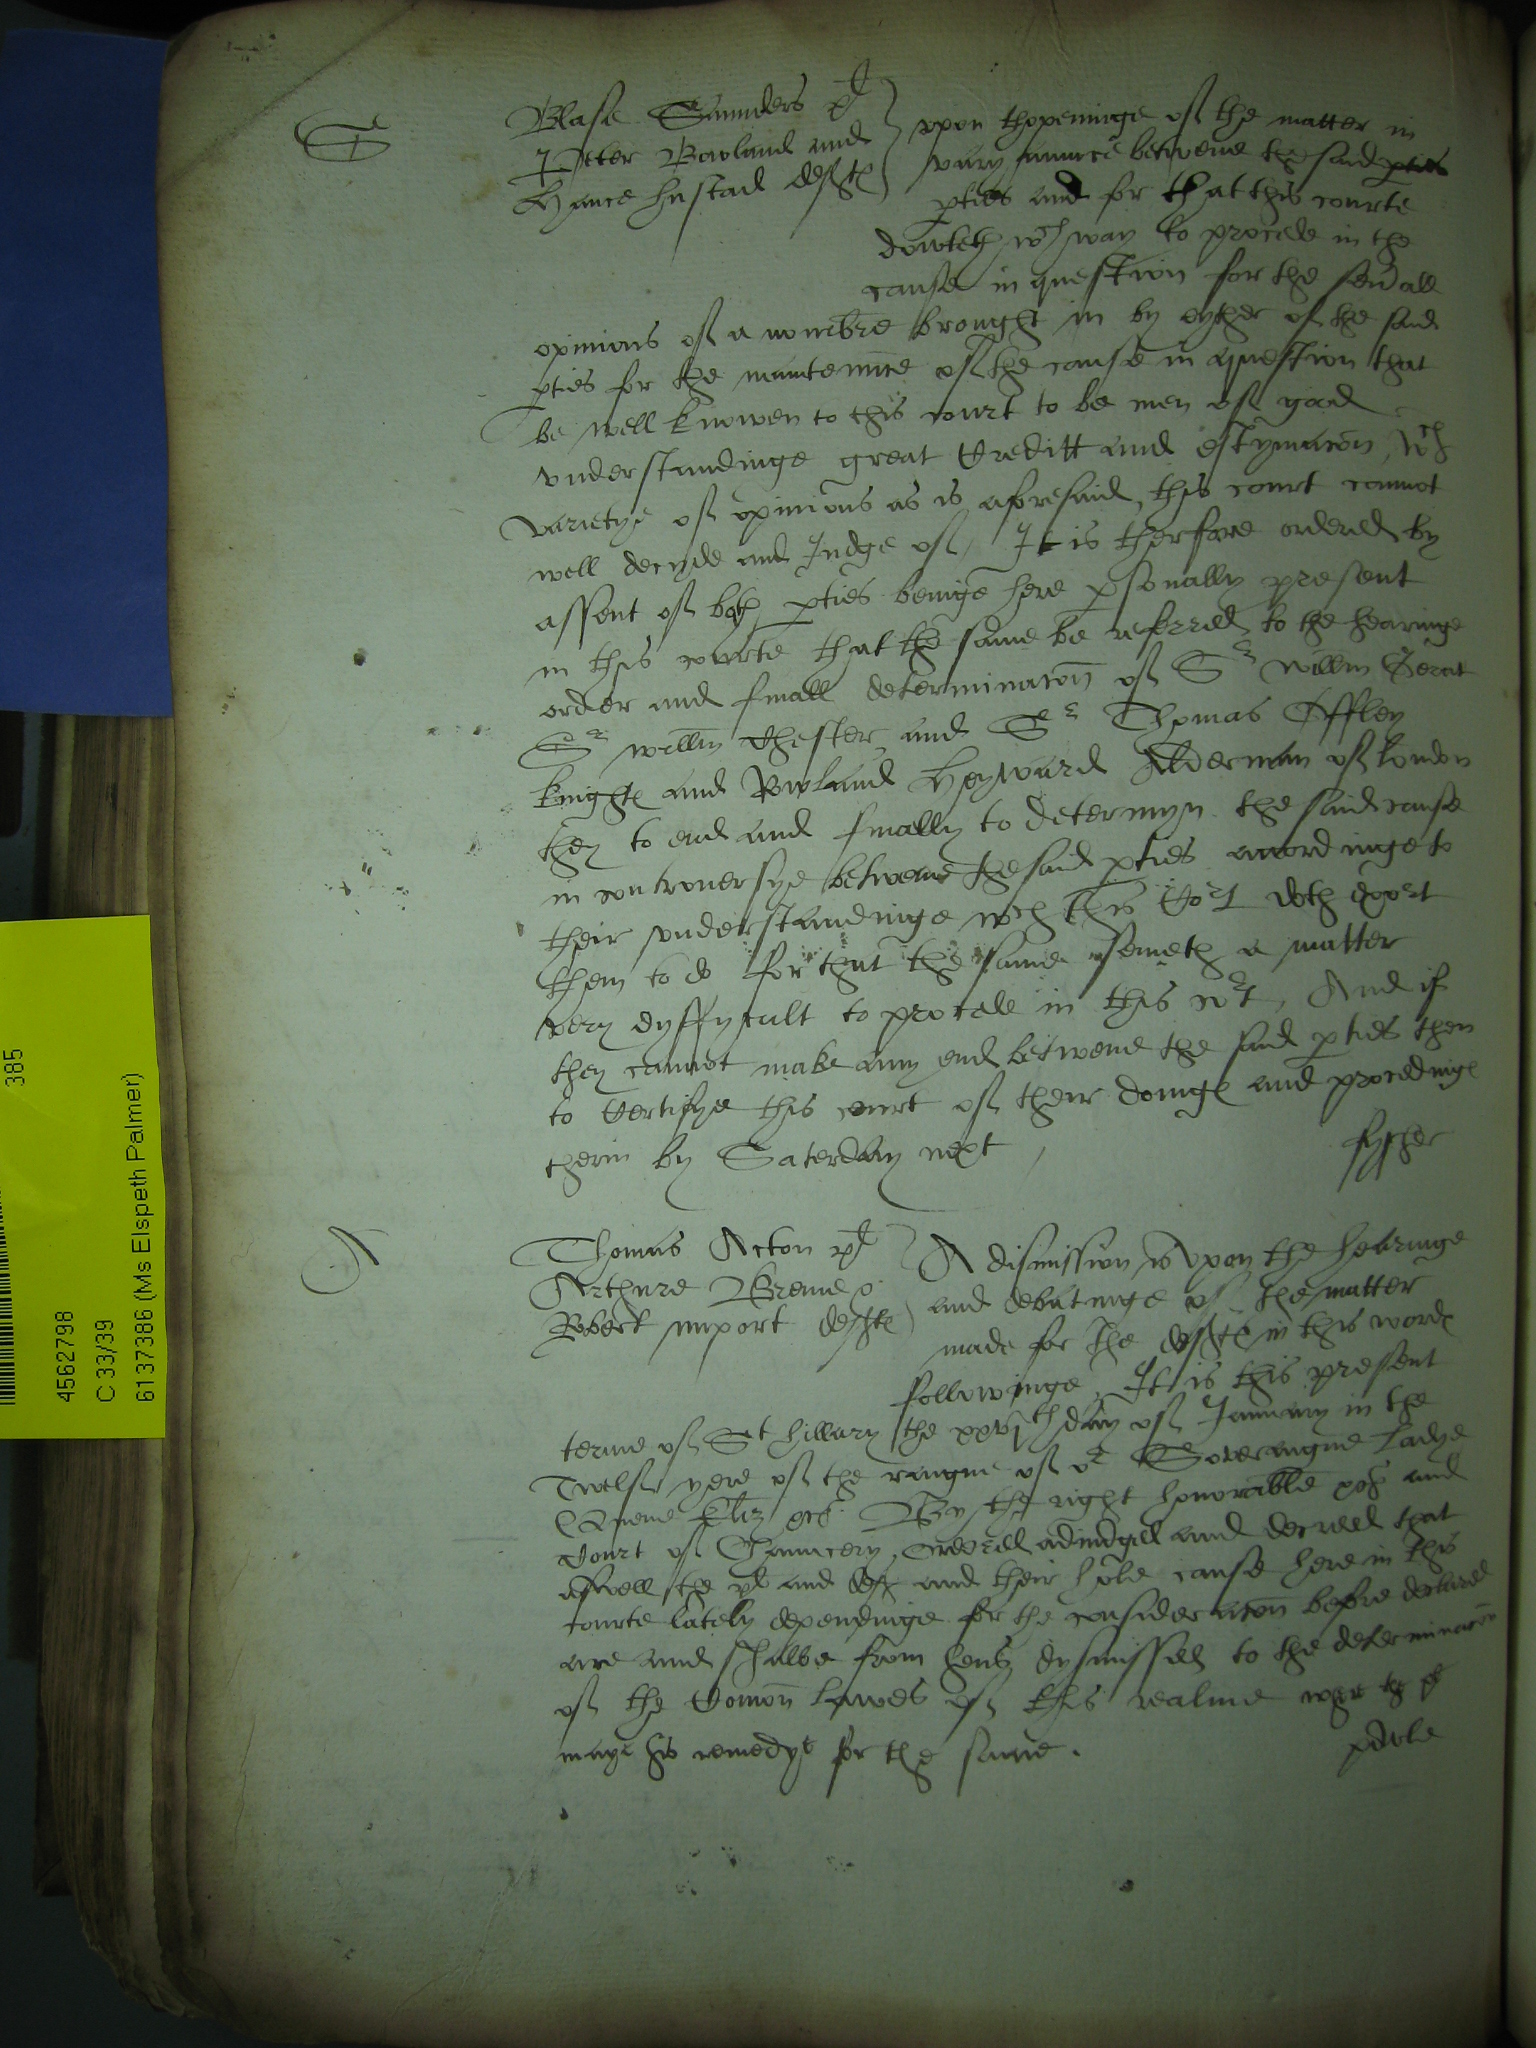 S
Blase Saunders pl
Peter Rowland and
Hance hustad defts
vpon thopeninge of the matter in
varyaunce betwene the said pties
pties and for that this courte
dowteth wch way to procede in the
cause in question for the seuall
opinions of a nombre brought in by eyther of the said
pties for the mainteinnce of the cause in question that
be well knowen to this court to be men of good
vnderstandinge great Creditt and estymacon, wch
varietye of opinions as is aforesaid, this court cannot
well decyde and Judge of, It is therfore ordered by
assent of both pties beinge here psonally present
in this courte that the same be referred to the hearinge
order and finall determinacon of Sr willm Gerat
Sr willm Chester, and Sr Thomas Offley
knights and Rowland Heyward Alderman of London
they to end and finally to determyn the said cause
in controuersye betwene the said pties accordinge to
their vnderstandinge wch this Cort doth exort
them to do for that the same semeth a matter
very dyffycult to procede in this cort, And if
they cannot make any end betwene the said pties then
to Certifye this court of their doings and procedings
therin by Saterday next
fyscher
A
Thomas Acton pl
Arthure Breme &
Robert mport defts
A dismission is vpon the hearinge
and debatinge of the matter
made for the defts in this words
followinge, It is this present
terme of St hillary the xxvjth day of January in the
Twelf yere of the raigne of or Soveraigne Ladye
Quene Eliz etc. By the right honorable and
Court of Chauncery, Ordered adiudged and decreed that
aswell the pl and deft and their hole cause here in this
courte lately dependinge for the consideracon before declared
are and shalbe from hens dysmissed to the determinacon
of the Comon lawes of this realme wher the pl
maye his remedye for the same.
powle
4562798
C 33/39
6137386 (Ms Elspeth Palmer)
385